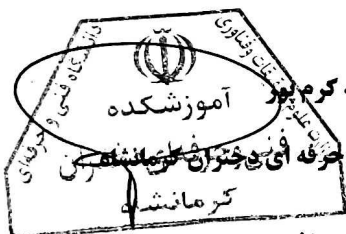 وزارت علوم تحقیقات وفناوری
دانشگاه فنی و حرفه‌ای
آموزشکده
کرم پور
حرفه ای دختران کرمانشاه
کرمانشاه